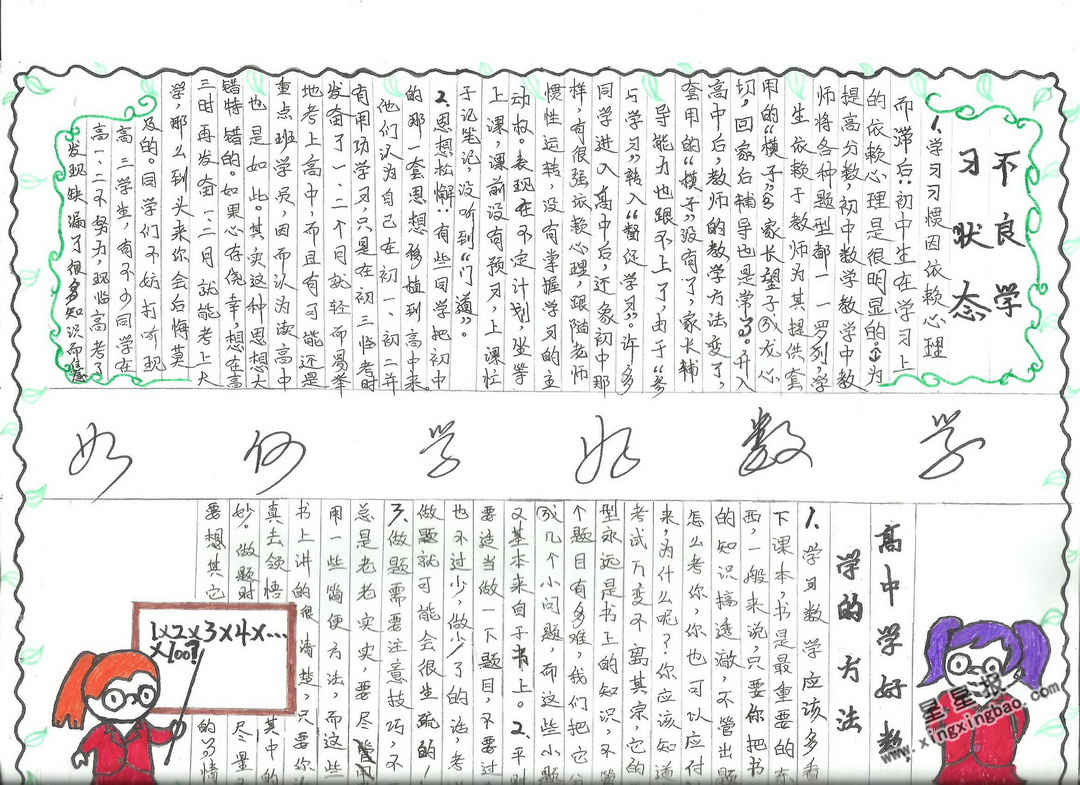 不良学
习状态
1.学习习惯因依赖心理
而滞后:初中生在学习上
的依赖心理是很明显的。①为
提高分数,初中数学教学中教
师将各种题型都一一罗列,学
生依赖于教师为其提供套
用的“模子”;②家长望子成龙心
切,回家后辅导也是常了。升入
高中后,教师的教学方法变了,
套用的“模子”没有了,家长辅
导能力也跟不上了,由于“参
与学习”转入“督促学习”。许多
同学进入高中后,还象初中那
样,有很强依赖心理,跟随老师
惯性运转,没有掌握学习的主
动权。表现在不定计划,坐等
上课,课前没有预习,上课忙
于记笔记,没听到“门道”。
2.思想松懈:有些同学把初中
的那一套思想移植到高中来
他们认为自己在初一、初二并
有用功学习只是在初三临考时
发奋了一、二个月就轻而易举
地考上高中,而且有可能还是
重点班学员,因而认为读高中
也是如此。其实这种思想大
错特错的。如果心存侥幸,想在高
三时再发奋一、二月就能考上大
学,那么到头来你会后悔莫
及的。同学们不妨打听现
高三学生,有不少同学在
高一、二不努力,现临高考了
发现缺漏了很多知识而焦
如何学好数学
高中学好数
学的方法
1.学习数学应该多看
下课本,书是最重要的东
西,一般来说,只要你把书
的知识搞透澈,不管出题
怎么考你,你也可以应付
来,为什么呢?你应该知道
考试万变不离其宗,它的
型永远是书上的知识,不管
个题目有多难,我们把它分
成几个小问题,而这些小题
又基本来自于书上。2.平时
要适当做一下题目,不要过
也不过少,做少了的话,考
做题就可能会很生疏的!
3、做题需要注意技巧,不
总是老老实实,要尽管用
用一些简便方法,而这些
书上讲的很清楚,只要你
真去领悟其中的
妙。做题时尽量
要想其它的多情
1×2×3×4×...
×100?
星星报
www.xingxingbao.com